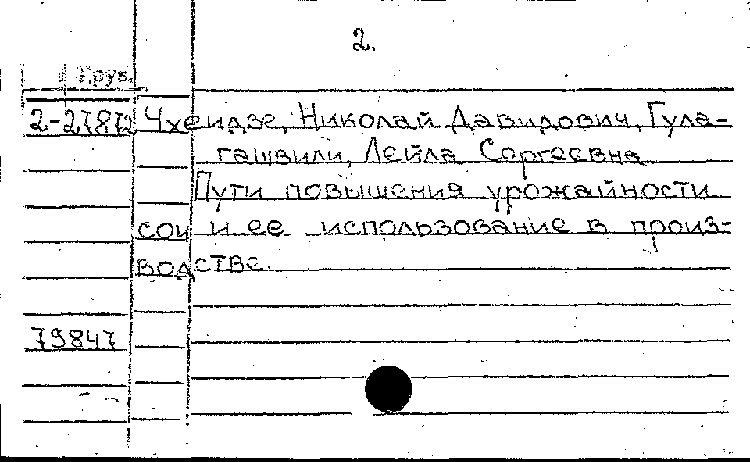 2.
Груз.
2-27872 Чхеидзе, Николай Давидович, Гула-
гашвили, Лейла Сергеевна
Пути повышения урожайности
сои и ее использование в произ-
водстве.
79847